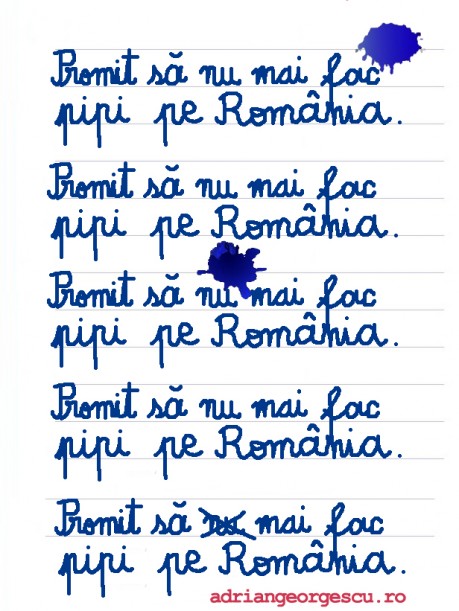 Promit să nu mai fac
pipi pe România.
Promit să nu mai fac
pipi pe România.
Promit să nu mai fac
pipi pe România.
Promit să nu mai fac
pipi pe România.
Promit să nu mai fac
pipi pe România.
adriangeorgescu.ro